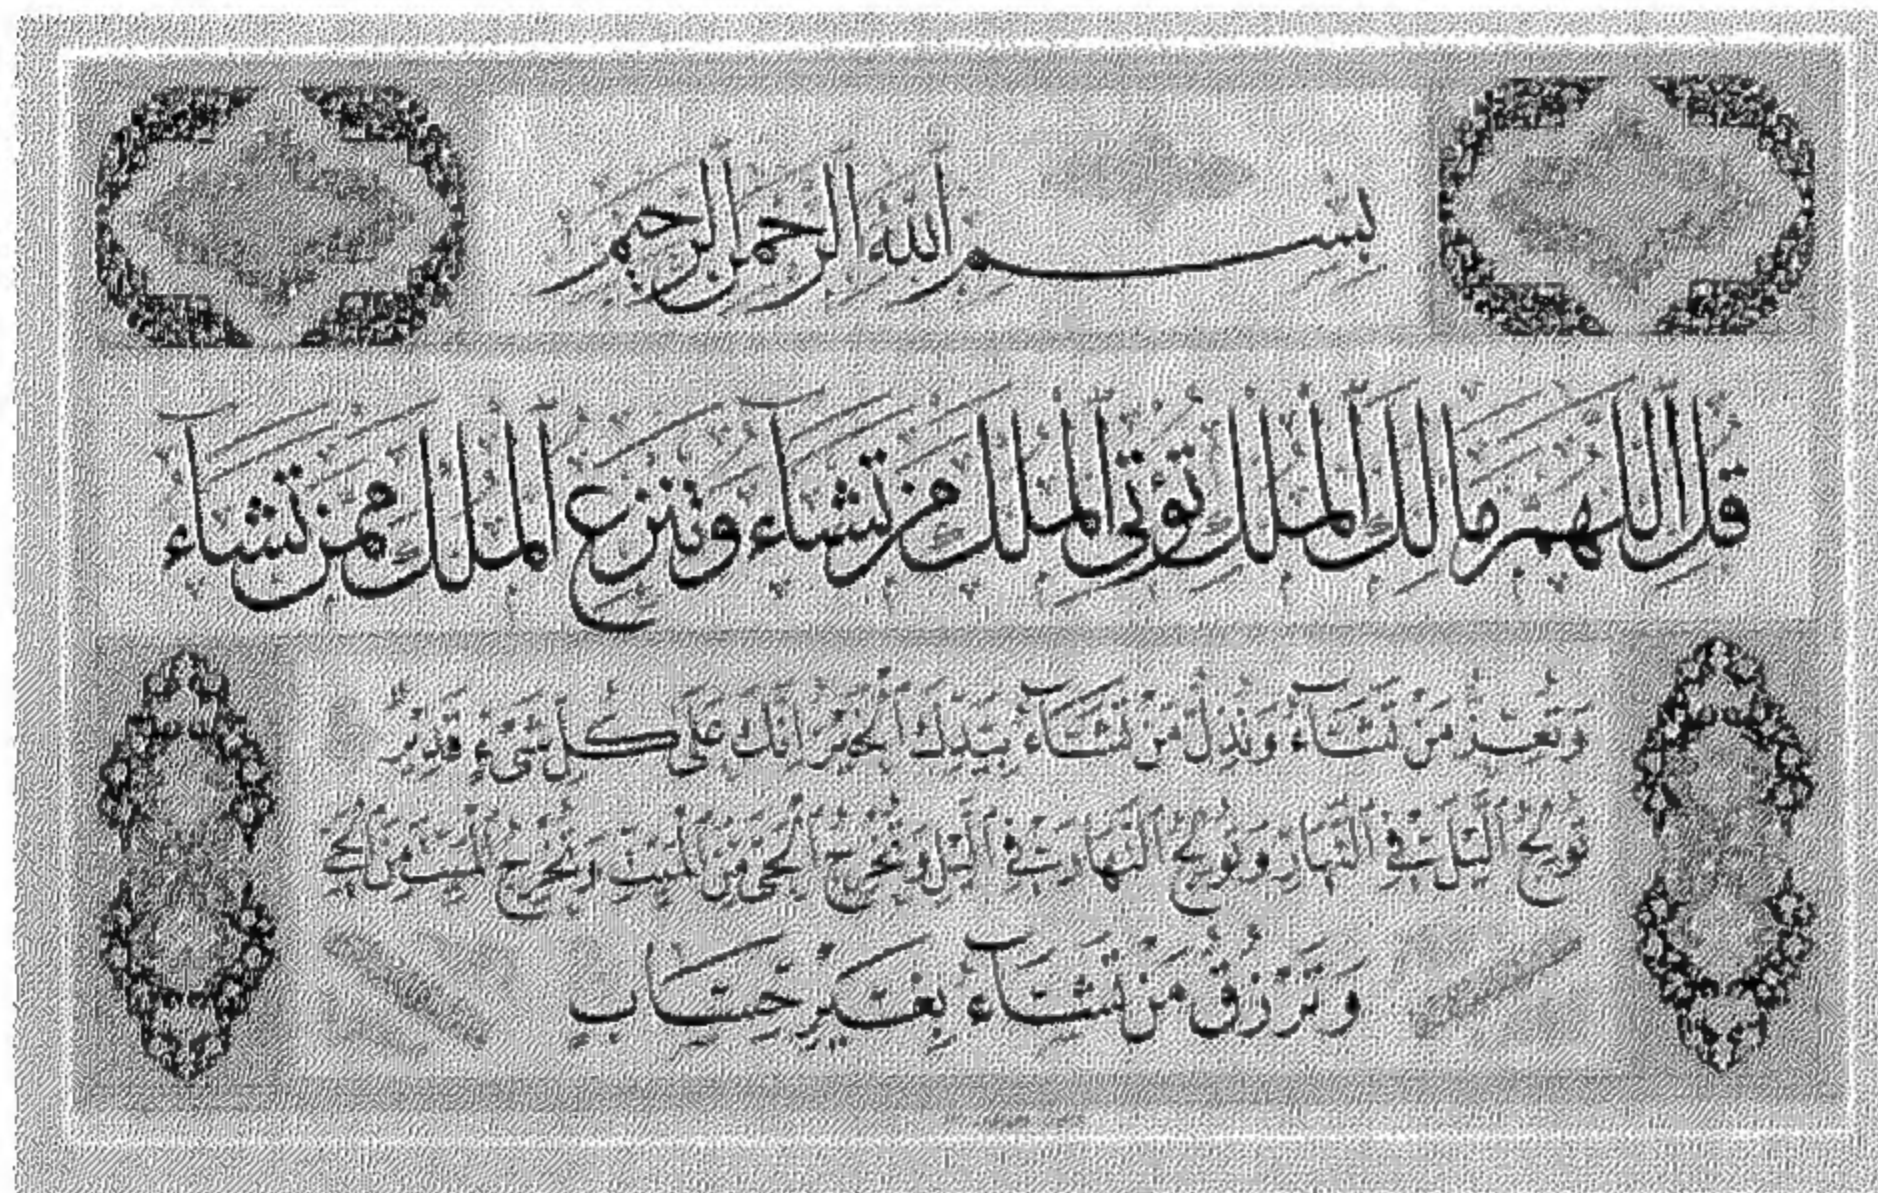 بسم الله الرحمن الرحيم
قل اللهم مالك الملك تؤتي الملك من تشاء وتنزع الملك ممن تشاء
وَتُعِزُّ مَنْ تَشَآءُ وَتُذِلُّ مَنْ تَشَآءُ بِيَدِكَ الْخَيْرُ اِنَّكَ عَلٰى كُلِّ شَىْءٍ قَدِيْرٌ
تُوْلِجُ الَّيْلَ فِى النَّهَارِ وَتُوْلِجُ النَّهَارَ فِى الَّيْلِ وَتُخْرِجُ الْحَىَّ مِنَ الْمَيِّتِ وَتُخْرِجُ الْمَيِّتَ مِنَ الْحَىِّ
وَتَرْزُقُ مَنْ تَشَآءُ بِغَيْرِ حِسَابٍ